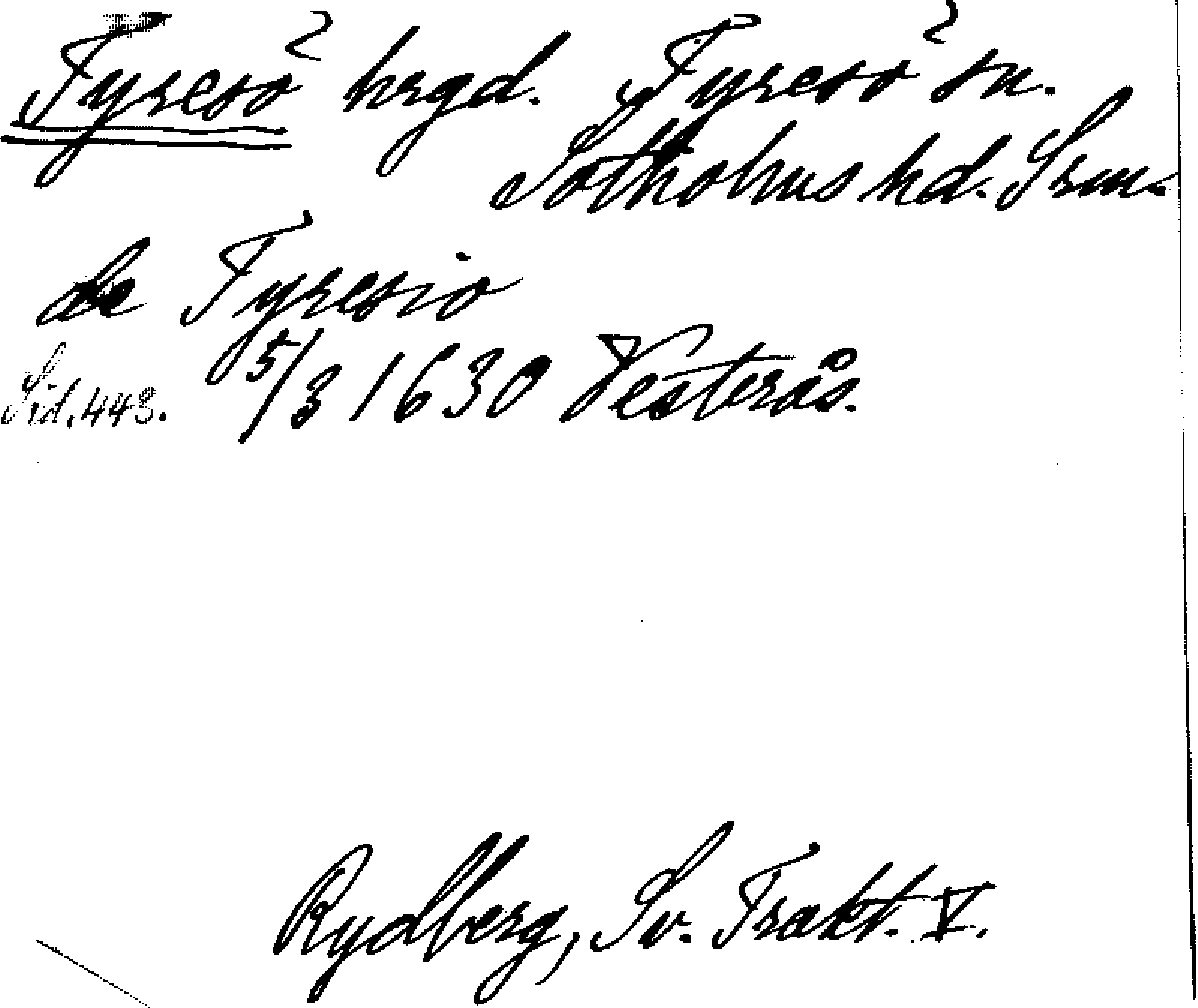 Tyresö hrgd. Tyresö sn.
Sotholms hd. Srm.
de Tyresio
Sid. 443. 5/3 1630 Vesterås.
Rydberg, Sv. Trakt. V.